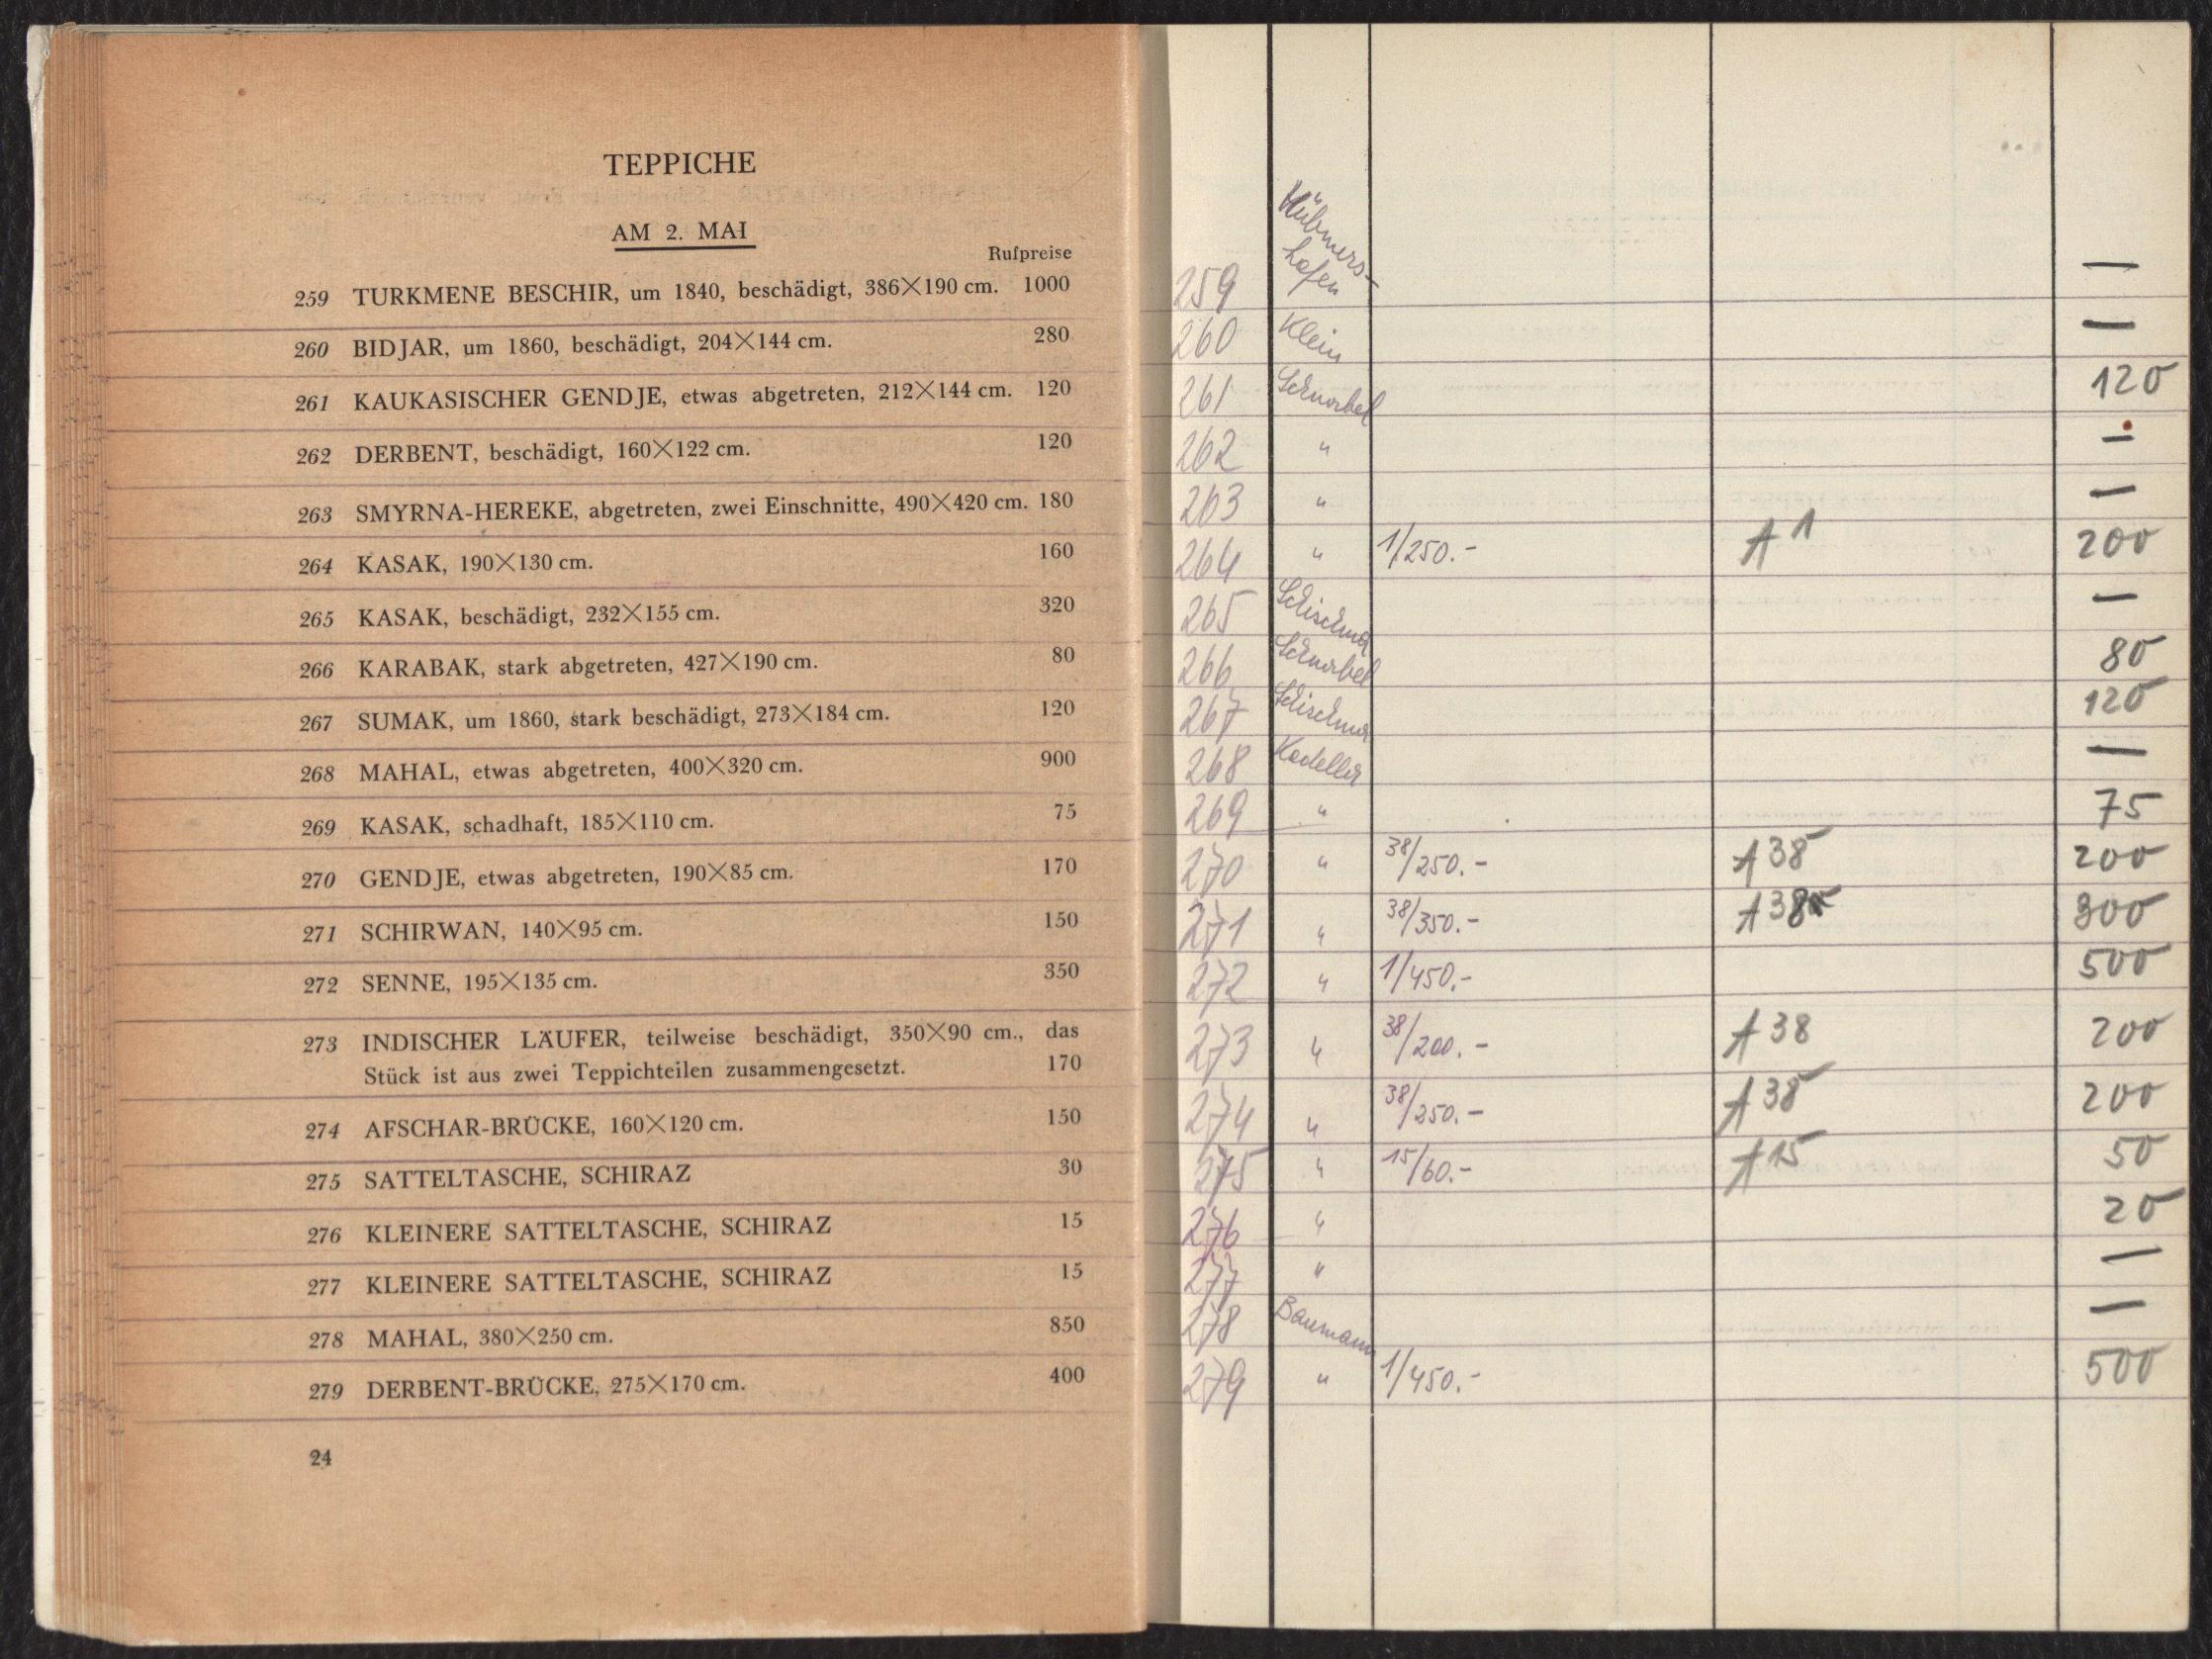 TEPPICHE
AM 2. MAI
Rufpreise
259 TURKMENE BESCHIR, um 1840, beschädigt, 386×190 cm. 1000
260 BIDJAR, um 1860, beschädigt, 204×144 cm. 280
261 KAUKASISCHER GENDJE, etwas abgetreten, 212×144 cm. 120
262 DERBENT, beschädigt, 160×122 cm. 120
263 SMYRNA-HEREKE, abgetreten, zwei Einschnitte, 490×420 cm. 180
264 KASAK, 190×130 cm. 160
265 KASAK, beschädigt, 232×155 cm. 320
266 KARABAK, stark abgetreten, 427×190 cm. 80
267 SUMAK, um 1860, stark beschädigt, 273×184 cm. 120
268 MAHAL, etwas abgetreten, 400×320 cm. 900
269 KASAK, schadhaft, 185×110 cm. 75
270 GENDJE, etwas abgetreten, 190×85 cm. 170
271 SCHIRWAN, 140×95 cm. 150
272 SENNE, 195×135 cm. 350
273 INDISCHER LÄUFER, teilweise beschädigt, 350×90 cm., das
Stück ist aus zwei Teppichteilen zusammengesetzt. 170
274 AFSCHAR-BRÜCKE, 160×120 cm. 150
275 SATTELTASCHE, SCHIRAZ 30
276 KLEINERE SATTELTASCHE, SCHIRAZ 15
277 KLEINERE SATTELTASCHE, SCHIRAZ 15
278 MAHAL, 380×250 cm. 850
279 DERBENT-BRÜCKE, 275×170 cm. 400
24
259 hofen —
260 Klein —
261 120
262 " —
263 " —
264 " 1/250.- A 1 200
265 —
266 80
267 120
268 —
269 " 75
270 " 38/250.- A 38 200
271 " 38/350.- A 38 300
272 " 1/450.- 500
273 " 38/200.- A 38 200
274 " 38/250.- A 38 200
275 " 15/60.- A 15 50
276 " 20
277 " —
278 Baumann —
279 " 1/450.- 500